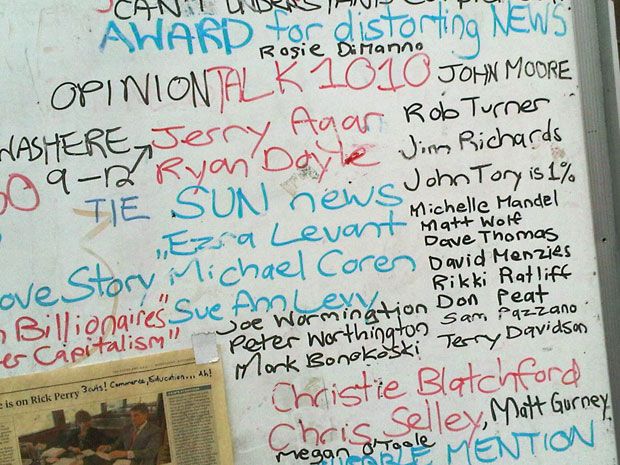 CAN'T
AWARD for distorting NEWS
Rosie DiManno
OPINION TALK 1010 JOHN MOORE
WASHERE Jerry Agar Rob Turner
9-12 Ryan Doyle Jim Richards
TIE SUN news John Tory is 1%
"Ezra Levant Michelle Mandel
Matt Wolf
Love Story Michael Coren Dave Thomas
David Menzies
Sue Ann Levy Rikki Ratliff
Billionaires" Joe Wormington Don Peat
er Capitalism" Peter Worthington Sam Pazzano
Mark Bonokoski Terry Davidson
e is on Rick Perry 3 cuts! Commerce, Education... Ah!
Christie Blatchford
Chris Selley, Matt Gurney
Megan O'Toole
MENTION